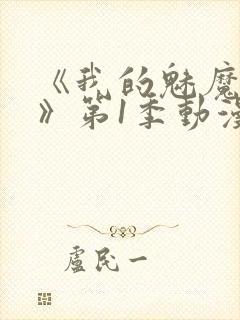 《我的魅魔
》第1季動漫
盧民一